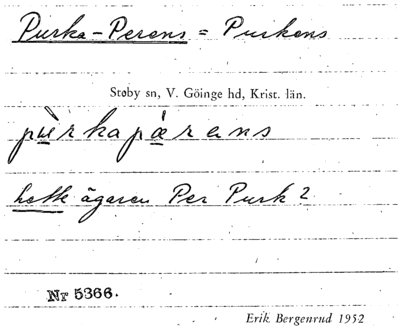 Purka-Perens = Purkens
Støby sn, V. Göinge hd, Krist. län.
pùrkapærens
hette ägaren Per Purk?
Nr 5366.
Erik Bergenrud 1952